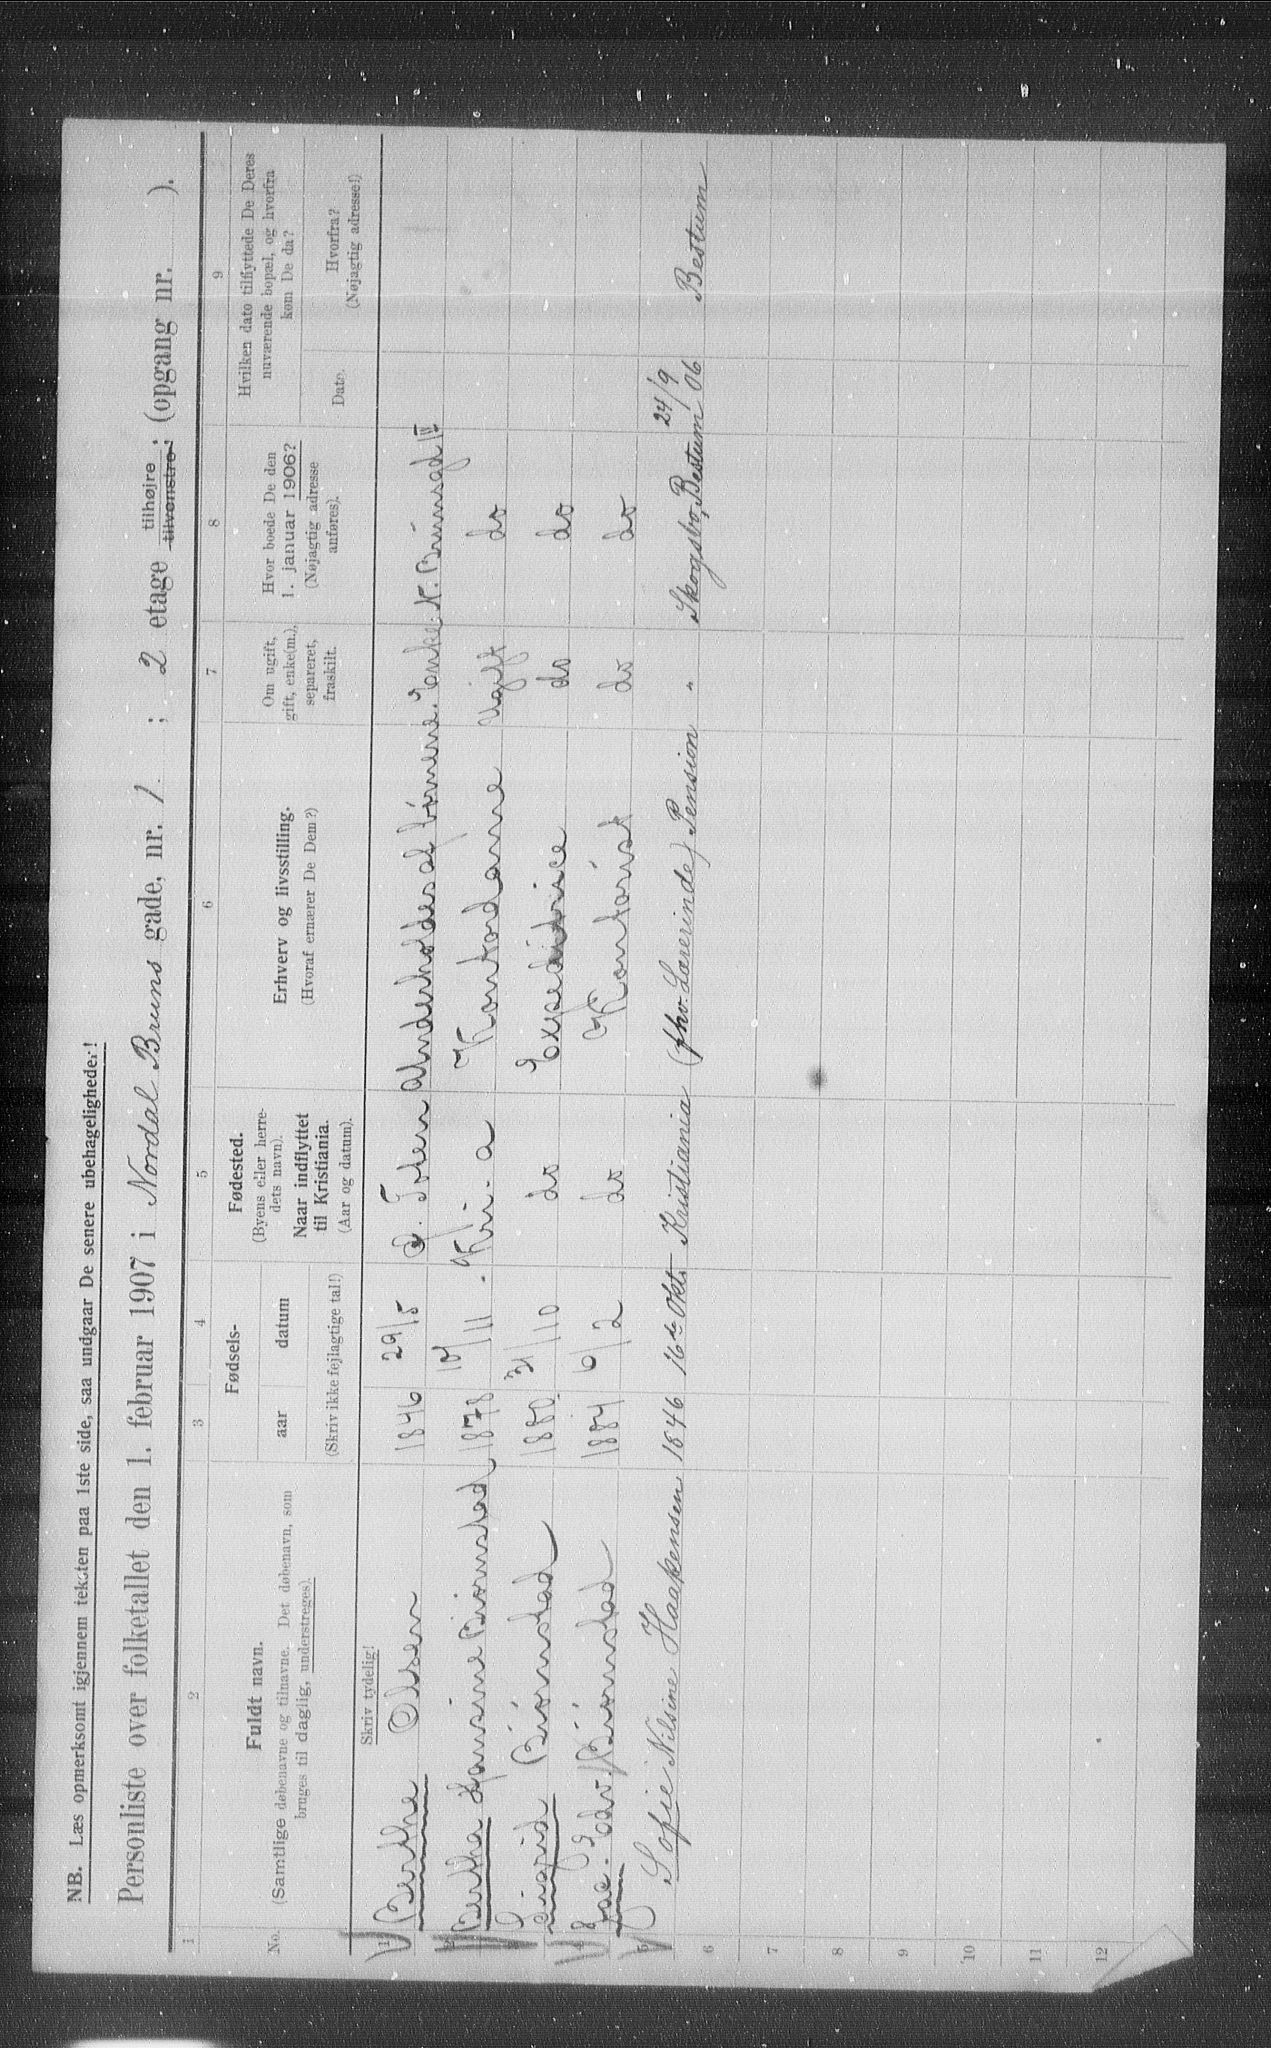 NB. Læs opmerksomt igjennem teksten paa 1ste side, saa undgaar De senere ubehageligheder!
Personliste over folketallet den 1. februar 1907 i Nordal Bruns gade, nr. 1. ; 2 etage tilhøjre tilvenstre ; (opgang nr. ).
1 2 3 4 5 6 7 8 9
No.
Fuldt navn.
(Samtlige døbenavne og tilnavne. Det døbenavn, som
bruges til daglig, understreges).
Fødsels-
aar datum
(Skriv ikke fejlagtige tal!)
Fødested.
(Byens eller herre-
dets navn).
Naar indflyttet
til Kristiania.
(Aar og datum).
Erhverv og livsstilling.
(Hvoraf ernærer De Dem?)
Om ugift,
gift, enke(m.),
separeret,
fraskilt.
Hvor boede De den
1. januar 1906?
(Nøjagtig adresse
anføres).
Hvilken dato tilflyttede De Deres
nuværende bopæl, og hvorfra
kom De da?
Dato.
Hvorfra?
(Nøjagtig adresse!)
Skriv tydelig!
1 Berthe Olsen 1846 29/5 Ø. Toten Underholdes af børnene. Enke N. Brunsgd 1 IV
2 Bertha Hansine Biørnstad 1878 /11 Kri-a Kontordame Ugift do
3 Sigrid Biørnstad 1880 31/10 do Expeditrice do do
4 Jac. Edv. Biørnstad 1884 6/2 do Kontorist do do
5 Sofie Nilsine Haakensen 1846 16de Okt. Kristiania (fhv. Lærerinde) Pension " Skogsbo, Bestum 24/9 06 Bestum
6
7
8
9
10
11
12